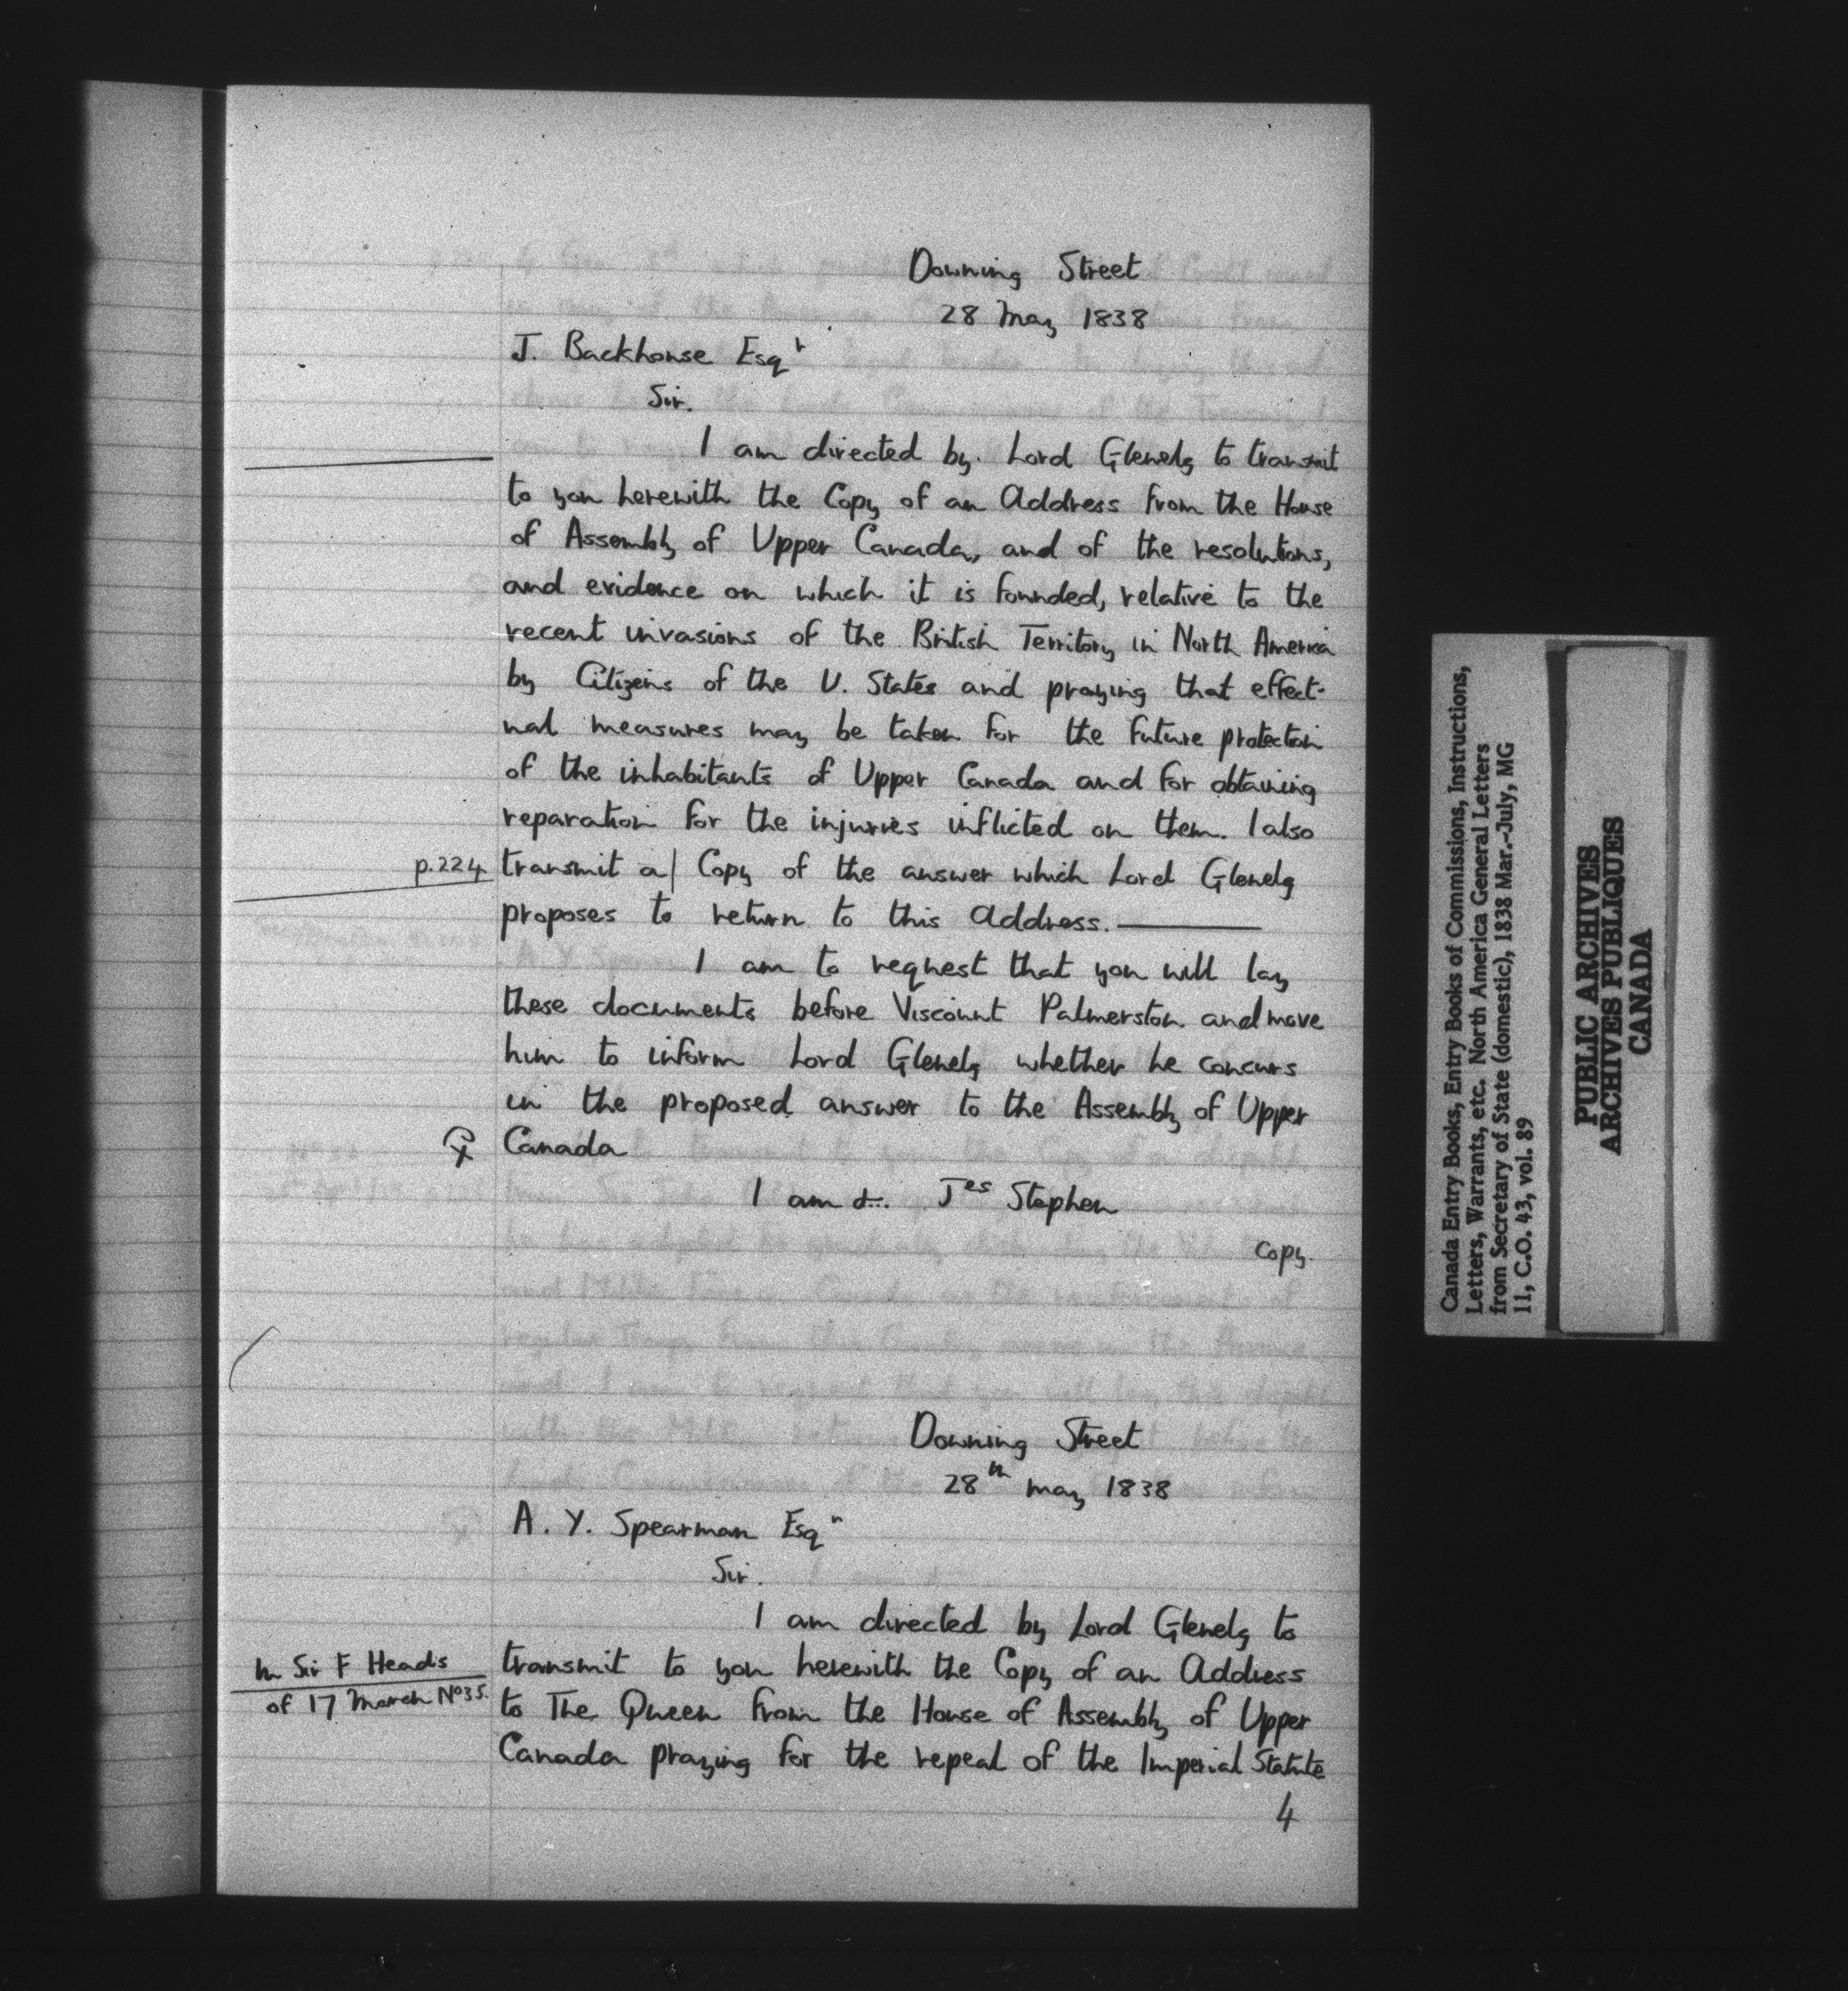 Downing Street
28 May 1838
J. Backhouse Esqr
Sir.
I am directed by Lord Glenelg to transmit
to you herewith the Copy of an Address from the House
of Assembly of Upper Canada, and of the resolutions,
and evidence on which it is founded, relative to the
recent invasions of the British Territory in North America
by Citizens of the U. States and praying that effect-
ual measures may be taken for the future protection
of the inhabitants of Upper Canada and for obtaining
reparation for the injuries inflicted on them. I also
p.224 transmit a/ Copy of the answer which Lord Glenelg
proposes to return to this Address.
I am to request that you will lay
these documents before Viscount Palmerston and move
him to inform Lord Glenelg whether he concurs
in the proposed answer to the Assembly of Upper
Canada
I am &... Jes Stephen
Copy.
Downing Street
28th May 1838
A. Y. Spearman Esqr
Sir.
I am directed by Lord Glenelg to
In Sir F Heads
of 17 March No 35.
transmit to you herewith the Copy of an Address
to The Queen from the House of Assembly of Upper
Canada praying for the repeal of the Imperial Statute
4
Canada Entry Books, Entry Books of Commissions, Instructions,
Letters, Warrants, etc. North America General Letters
from Secretary of State (domestic), 1838 Mar.-July, MG
11, C.O. 43, vol. 89
PUBLIC ARCHIVES
ARCHIVES PUBLIQUES
CANADA